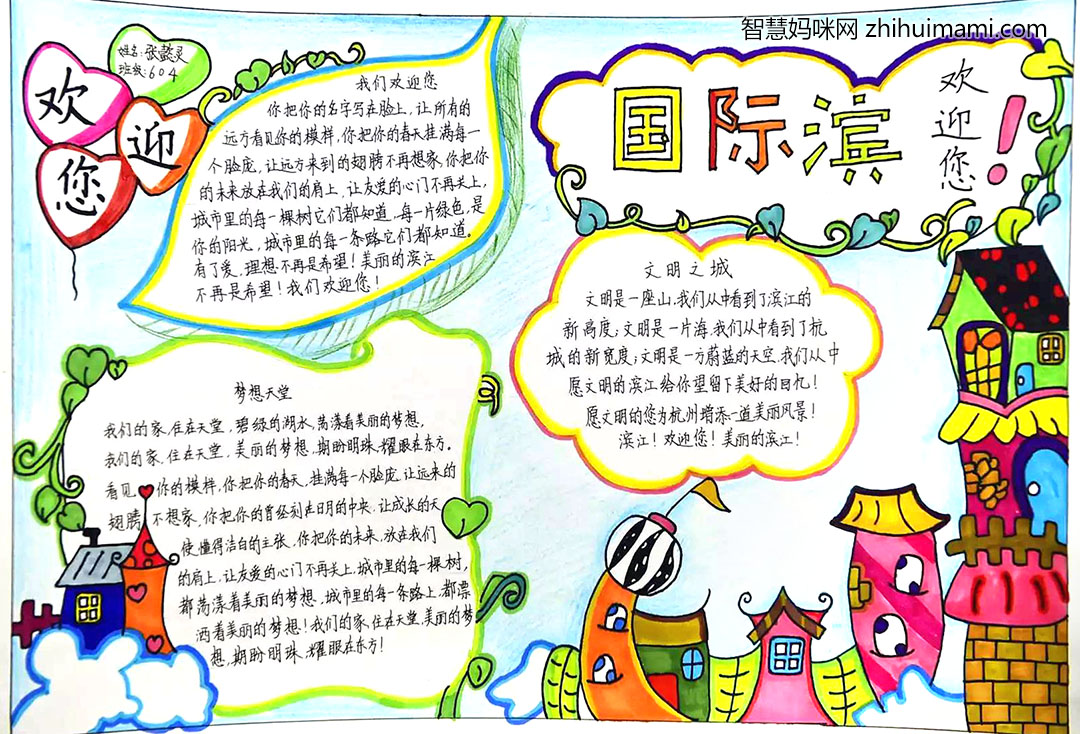 智慧妈咪网 zhihuimami.com
姓名:张懿灵
班级:604
欢
迎
您
国际滨
欢迎您!
我们欢迎您
你把你的名字写在脸上,让所有的
远方看见你的模样,你把你的春天挂满每一
个脸庞,让远方来到的翅膀不再想家,你把你
的未来放在我们的肩上,让友爱的心门不再关上,
城市里的每一棵树它们都知道,每一片绿色,是
你的阳光,城市里的每一条路它们都知道。
有了爱,理想不再是希望!美丽的滨江
不再是希望!我们欢迎您!
文明之城
文明是一座山,我们从中看到了滨江的
新高度;文明是一片海,我们从中看到了杭
城的新宽度;文明是一方蔚蓝的天空,我们从中
愿文明的滨江给你望留下美好的回忆!
愿文明的您为杭州增添一道美丽风景!
滨江!欢迎您!美丽的滨江!
梦想天堂
我们的家,住在天堂,碧绿的湖水,荡漾着美丽的梦想,
我们的家,住在天堂,美丽的梦想,期盼明珠,耀眼在东方。
看见 你的模样,你把你的春天,挂满每一个脸庞,让远来的
翅膀 不想家,你把你的曾经刻在日月的中央,让成长的天
使,懂得洁白的主张,你把你的未来,放在我们
的肩上,让友爱的心门不再关上,城市里的每一棵树,
都荡漾着美丽的梦想,城市里的每一条路上,都票
洒着美丽的梦想!我们的家,住在天堂,美丽的梦
想,期盼明珠,耀眼在东方!